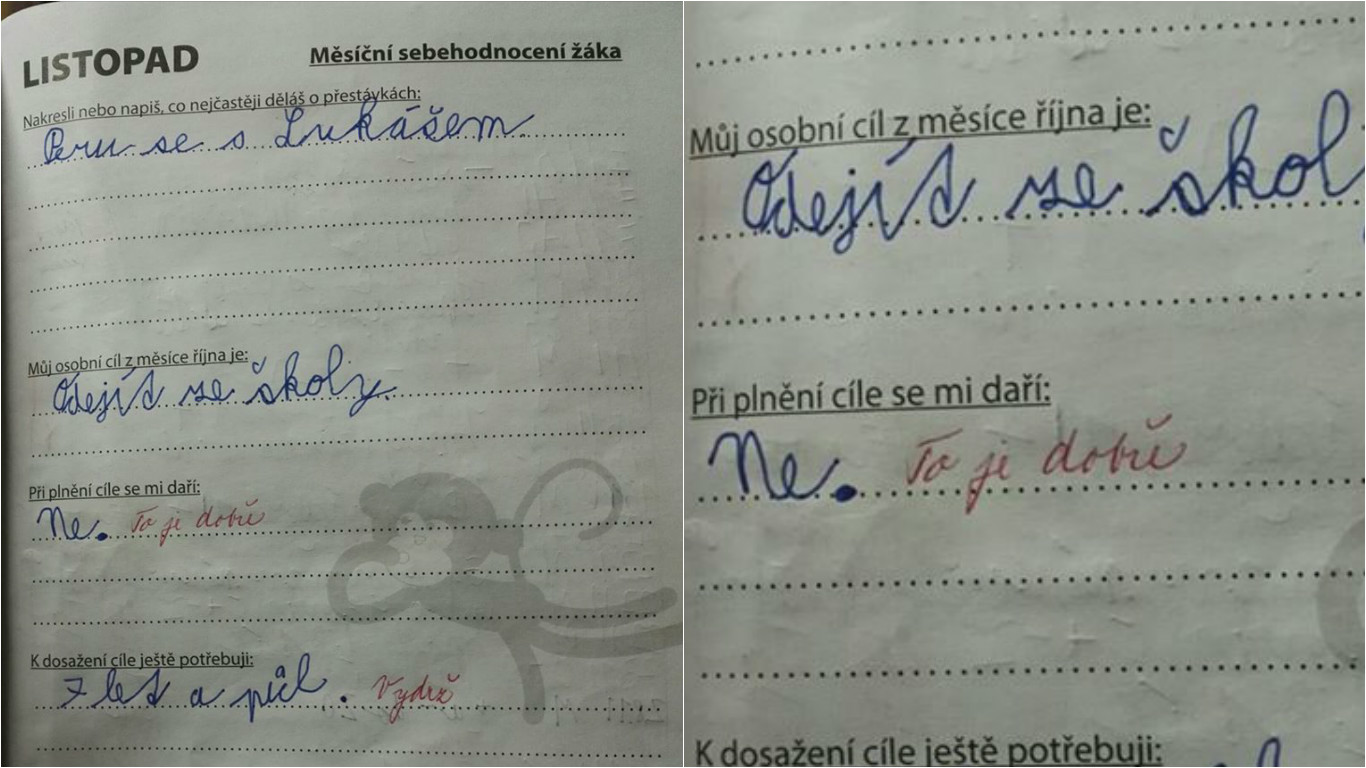 LISTOPAD
Měsíční sebehodnocení žáka
Nakresli nebo napiš, co nejčastěji děláš o přestávkách:
Peru se s Lukášem.
Můj osobní cíl z měsíce října je:
Odejít ze školy.
Při plnění cíle se mi daří:
Ne. To je dobře
K dosažení cíle ještě potřebuji:
7 let a půl. Vydrž
Můj osobní cíl z měsíce října je:
Odejít ze škol
Při plnění cíle se mi daří:
Ne. To je dobře
K dosažení cíle ještě potřebuji: